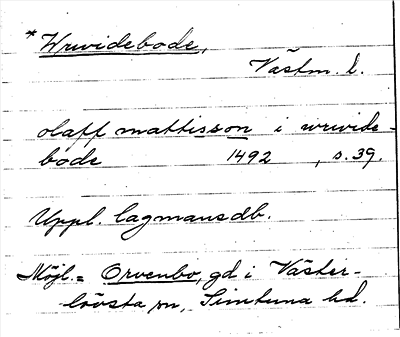 * Wrwidebode,
Västm. l.
olaff mattisson i wrwide-
bode 1492, s. 39.
Uppl. lagmansdb.
Möjl. = Orvenbo, gd i Väster-
lövsta sn, Simtuna hd.